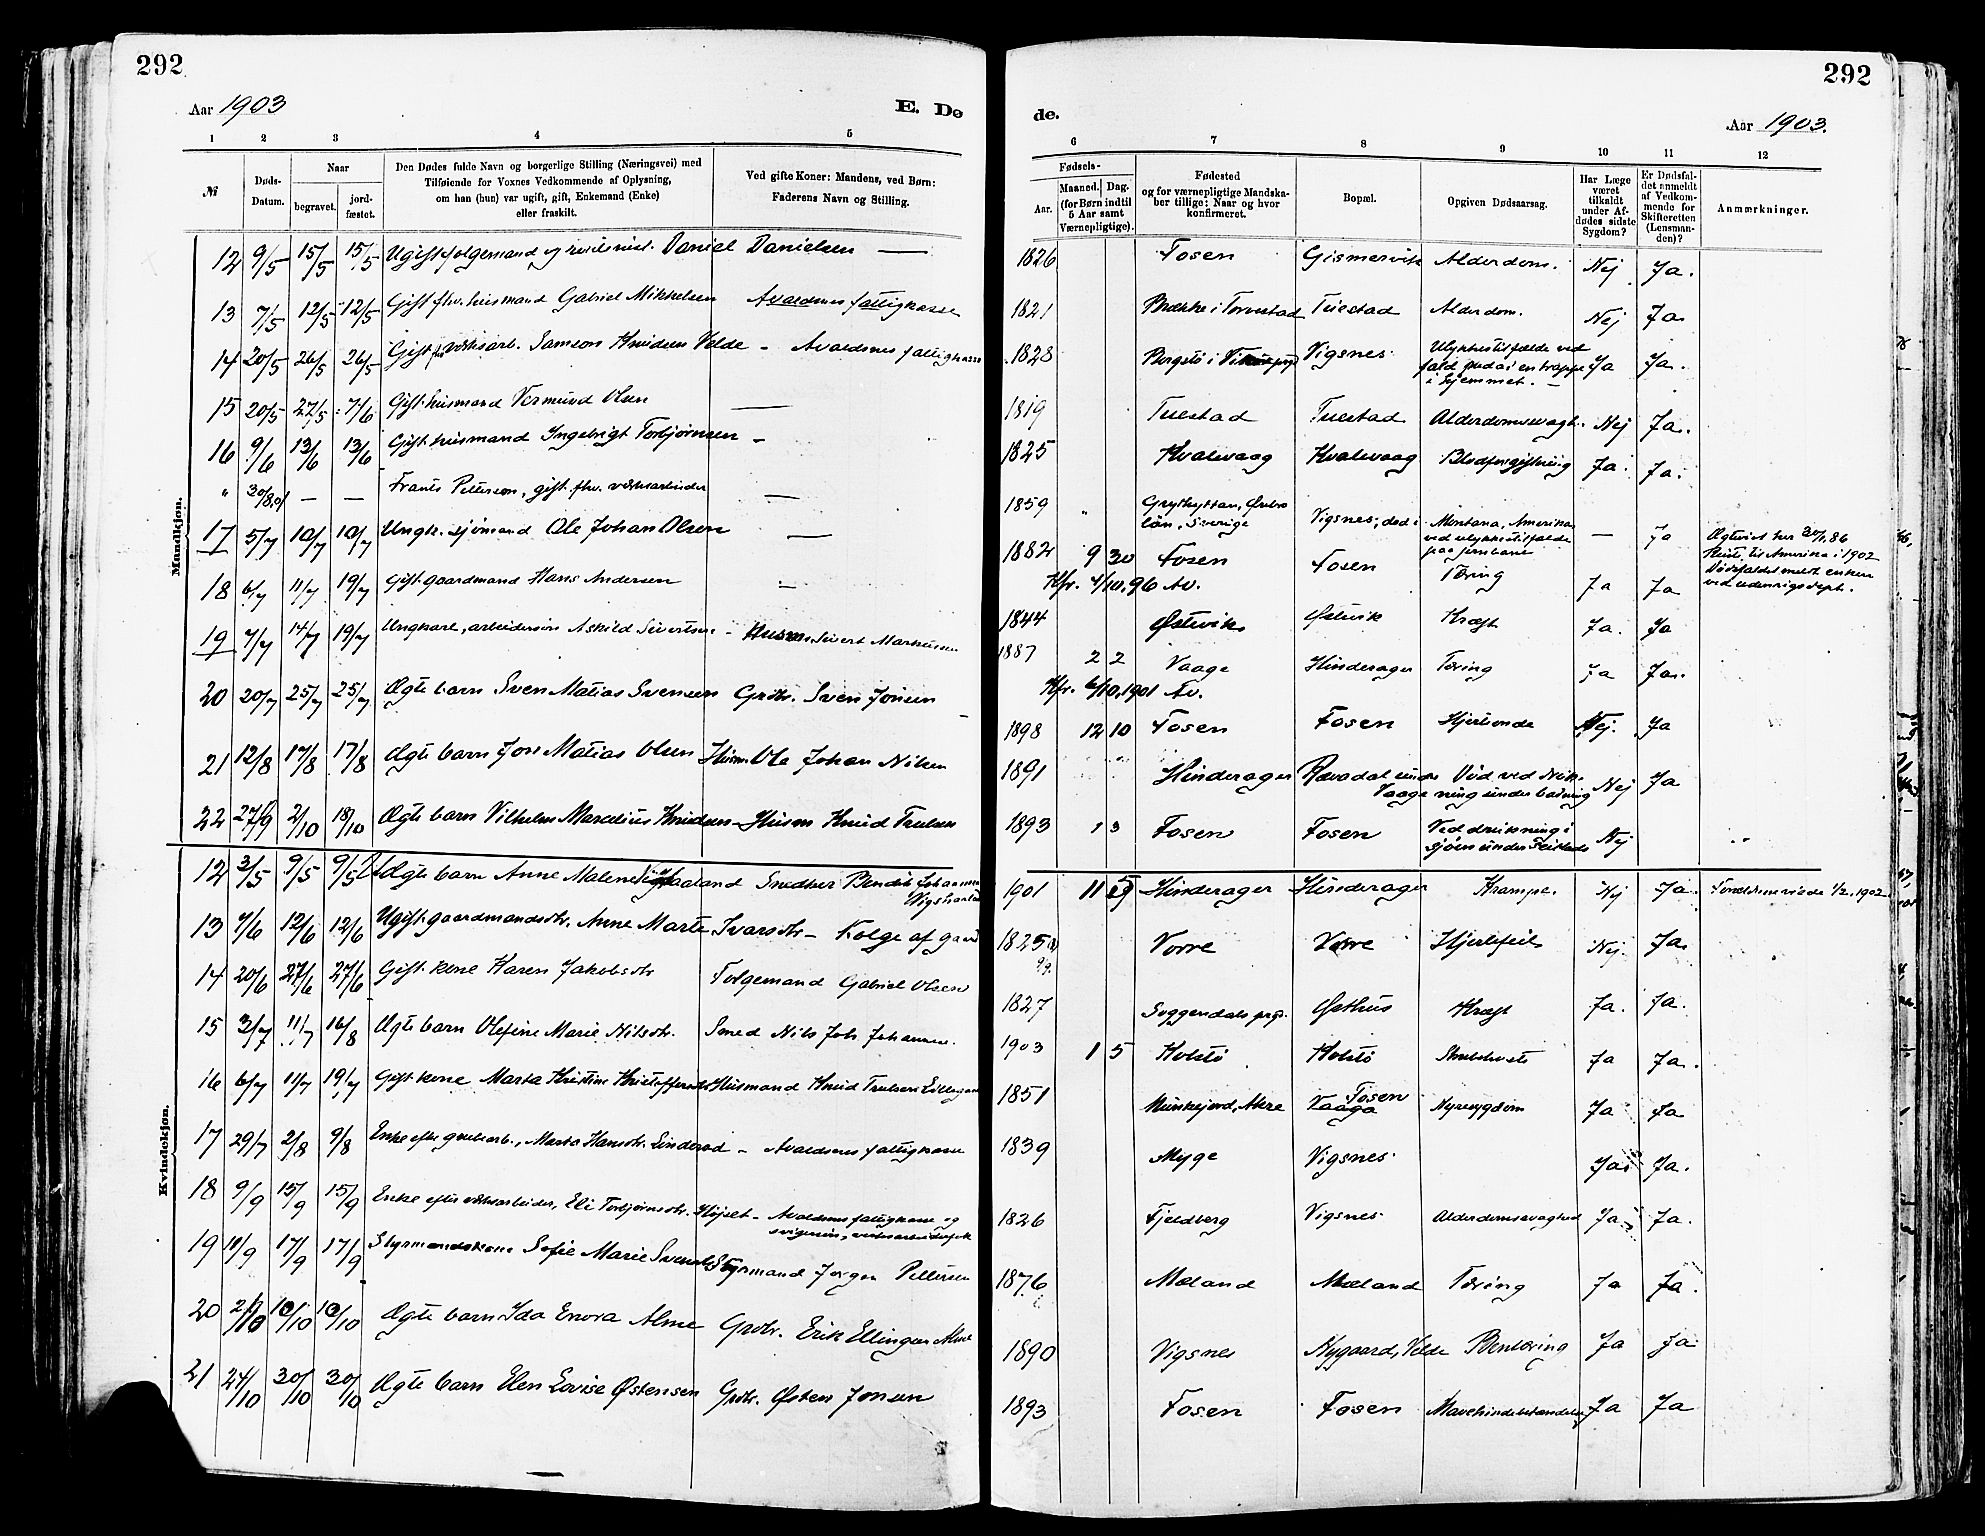 292
Aar 1903
E. Dø
1 2 3 4 5
№ Døds-Datum. Naar begravet. jord-fæstet. Den Dødes fulde Navn og borgerlige Stilling (Næringsvei) med Tilføiende for Voxnes Vedkommende af Oplysning, om han (hun) var ugift, gift, Enkemand (Enke) eller fraskilt. Ved gifte Koner: Mandens, ved Børn: Faderens Navn og Stilling.
Mandkjøn.
12 9/5 15/5 15/5 Ugift folgemand Daniel Danielsen —
13 7/5 12/5 12/5 Gift fhv. husmand Gabriel Mikkelsen Avaldsnes fattigkasse
14 20/5 26/5 26/5 Gift fhv værksarb. Samson Knudsen Velde – Avaldsnes fattigkasse
15 20/5 27/5 7/6 Gift husmand Vermund Olsen —
16 9/6 13/6 13/6 Gift husmand Ingebrigt Torbjørnsen –
" 30/8.01 — — Frants Pettersen, gift fhv. værksarbeider —
17 5/7 10/7 19/7 Ungk. sjømand Ole Johan Olsen —
18 6/7 11/7 19/7 Gift gaardmand Hans Andersen —
19 7/7 14/7 19/7 Ungkarl, arbeidersøn Askild Sivertsen – Husm. Sivert Markussen
20 20/7 25/7 25/7 Ægte barn Sven Matias Svensen Grdbr. Sven Jonsen
21 12/8 17/8 17/8 Ægte barn Jon Matias Olsen Husm. Ole Johan Nilsen
22 27/9 2/10 18/10 Ægte barn Vilhelm Marselius Knudsen – Husm Knud Trulsen
Kvindekjøn.
12 3/5 9/5 9/5 Ægte barn Anne Malene Vigshaaland Snedker Bendik Johannesen Vigshaaland
13 7/6 12/6 12/6 Ugift gaardmandsdtr. Anne Marte Ivarsdtr – Folge af gaard
14 20/6 27/6 27/6 Gift kone Karen Jakobsdtr Folgemand Gabriel Olsen
15 3/7 11/7 16/8 Ægte barn Olefine Marie Nilsdtr. Smed Nils Joh. Johannesen.
16 6/7 11/7 19/7 Gift kone Marta Kristine Kristoffersdtr Husmand Knud Trulsen
17 29/7 2/8 9/8 Enke efter grubearb., Marta Hansdtr. Linderød – Avaldsnes fattigkasse
18 9/9 15/9 15/9 Enke efter værksarbeider, Eli Torbjørnsdtr. Højset – Avaldsnes fattigkasse og svigersøn,
19 11/9 17/9 17/9 Styrmandskone Sofie Marie Svendsdtr Styrmand Jørgen Pettersen
20 2/10 10/10 10/10 Ægte barn Ida Enora Alme Grdbr. Erik Ellingsen Alme
21 24/10 30/10 30/10 Ægte barn Elen Lovise Østensen Grdbr. Østen Jonsen
292
de.
Aar 1903.
6 7 8 9 10 11 12
Fødsels- Aar. Maaned. Dag. (for Børn indtil 5 Aar samt Værnepligtige). Fødested og for værnepligtige Mandskaber tillige: Naar og hvor konfirmeret. Bopæl. Opgiven Dødsaarsag. Har Læge været tilkaldt under Afdødes sidste Sygdom? Er Dødsfaldet anmeldt af Vedkommende for Skifteretten (Lensmanden)? Anmærkninger.
1826 Fosen Gismervik Alderdom. Nej Ja.
1821 Brække i Torvestad Tuestad Alderdom. Nej Ja.
1828 Bergstø i Vigsnes Ulykkestilfælde ved fald i en trappe i hjemmet. – Ja Ja.
1819 Tuestad Tuestad Alderdomssvagh. Nej Ja.
1825 Kvalevaag Kvalevaag Blodforgiftning Ja. Ja.
1859 " Grythyttan, Örebro län, Sverige Vigsnes, død i Montana, Amerika ved ulykkestilfælde paa jernbane — Ja Ægteviet her 30/1.86 Reiste til Amerika i 1902 Dødsfaldet meldt enken ved udenrigsdept.
1882 9 30 Fosen Fosen Tæring Ja Ja
Kfr. 4/10.96 Av.
1844 Østvik Østvik Kræft Ja. Ja
1887 2 2 Vaage Hinderager Tæring Ja Ja.
Kfr. 6/10.1901 Av.
1898 12 10 Fosen Fosen Hjerteonde Nej. Ja
1891 Hinderager Rævadal under Vaage Død ved drukning under badning Nej Ja
1893 1 3 Fosen Fosen Ved drukning i sjøen under Nej "
1901 11 19 Hinderager Hinderager Krampe. Nej Ja. 1/2.1902
1825 Vorre Vorre Hjertefeil Nej. Ja.
1827 Soggendals prgj. Østhus Kræft Ja. Ja.
1903 1 5 Kolstø Kolstø Ja Ja.
1851 Munkejord, Akre Fosen Vaage Nyresygdom Ja Ja
1839 Myge Vigsnes. Ja. Ja.
1826 Fjeldberg Vigsnes. Alderdomssvaghed Ja. Ja.
1876 Mæland Mæland Tæring Ja Ja.
1890 Vigsnes Nygaard, Velde Bentæring Ja Ja
1893 Fosen Fosen Mavehindebetændelse Ja Ja